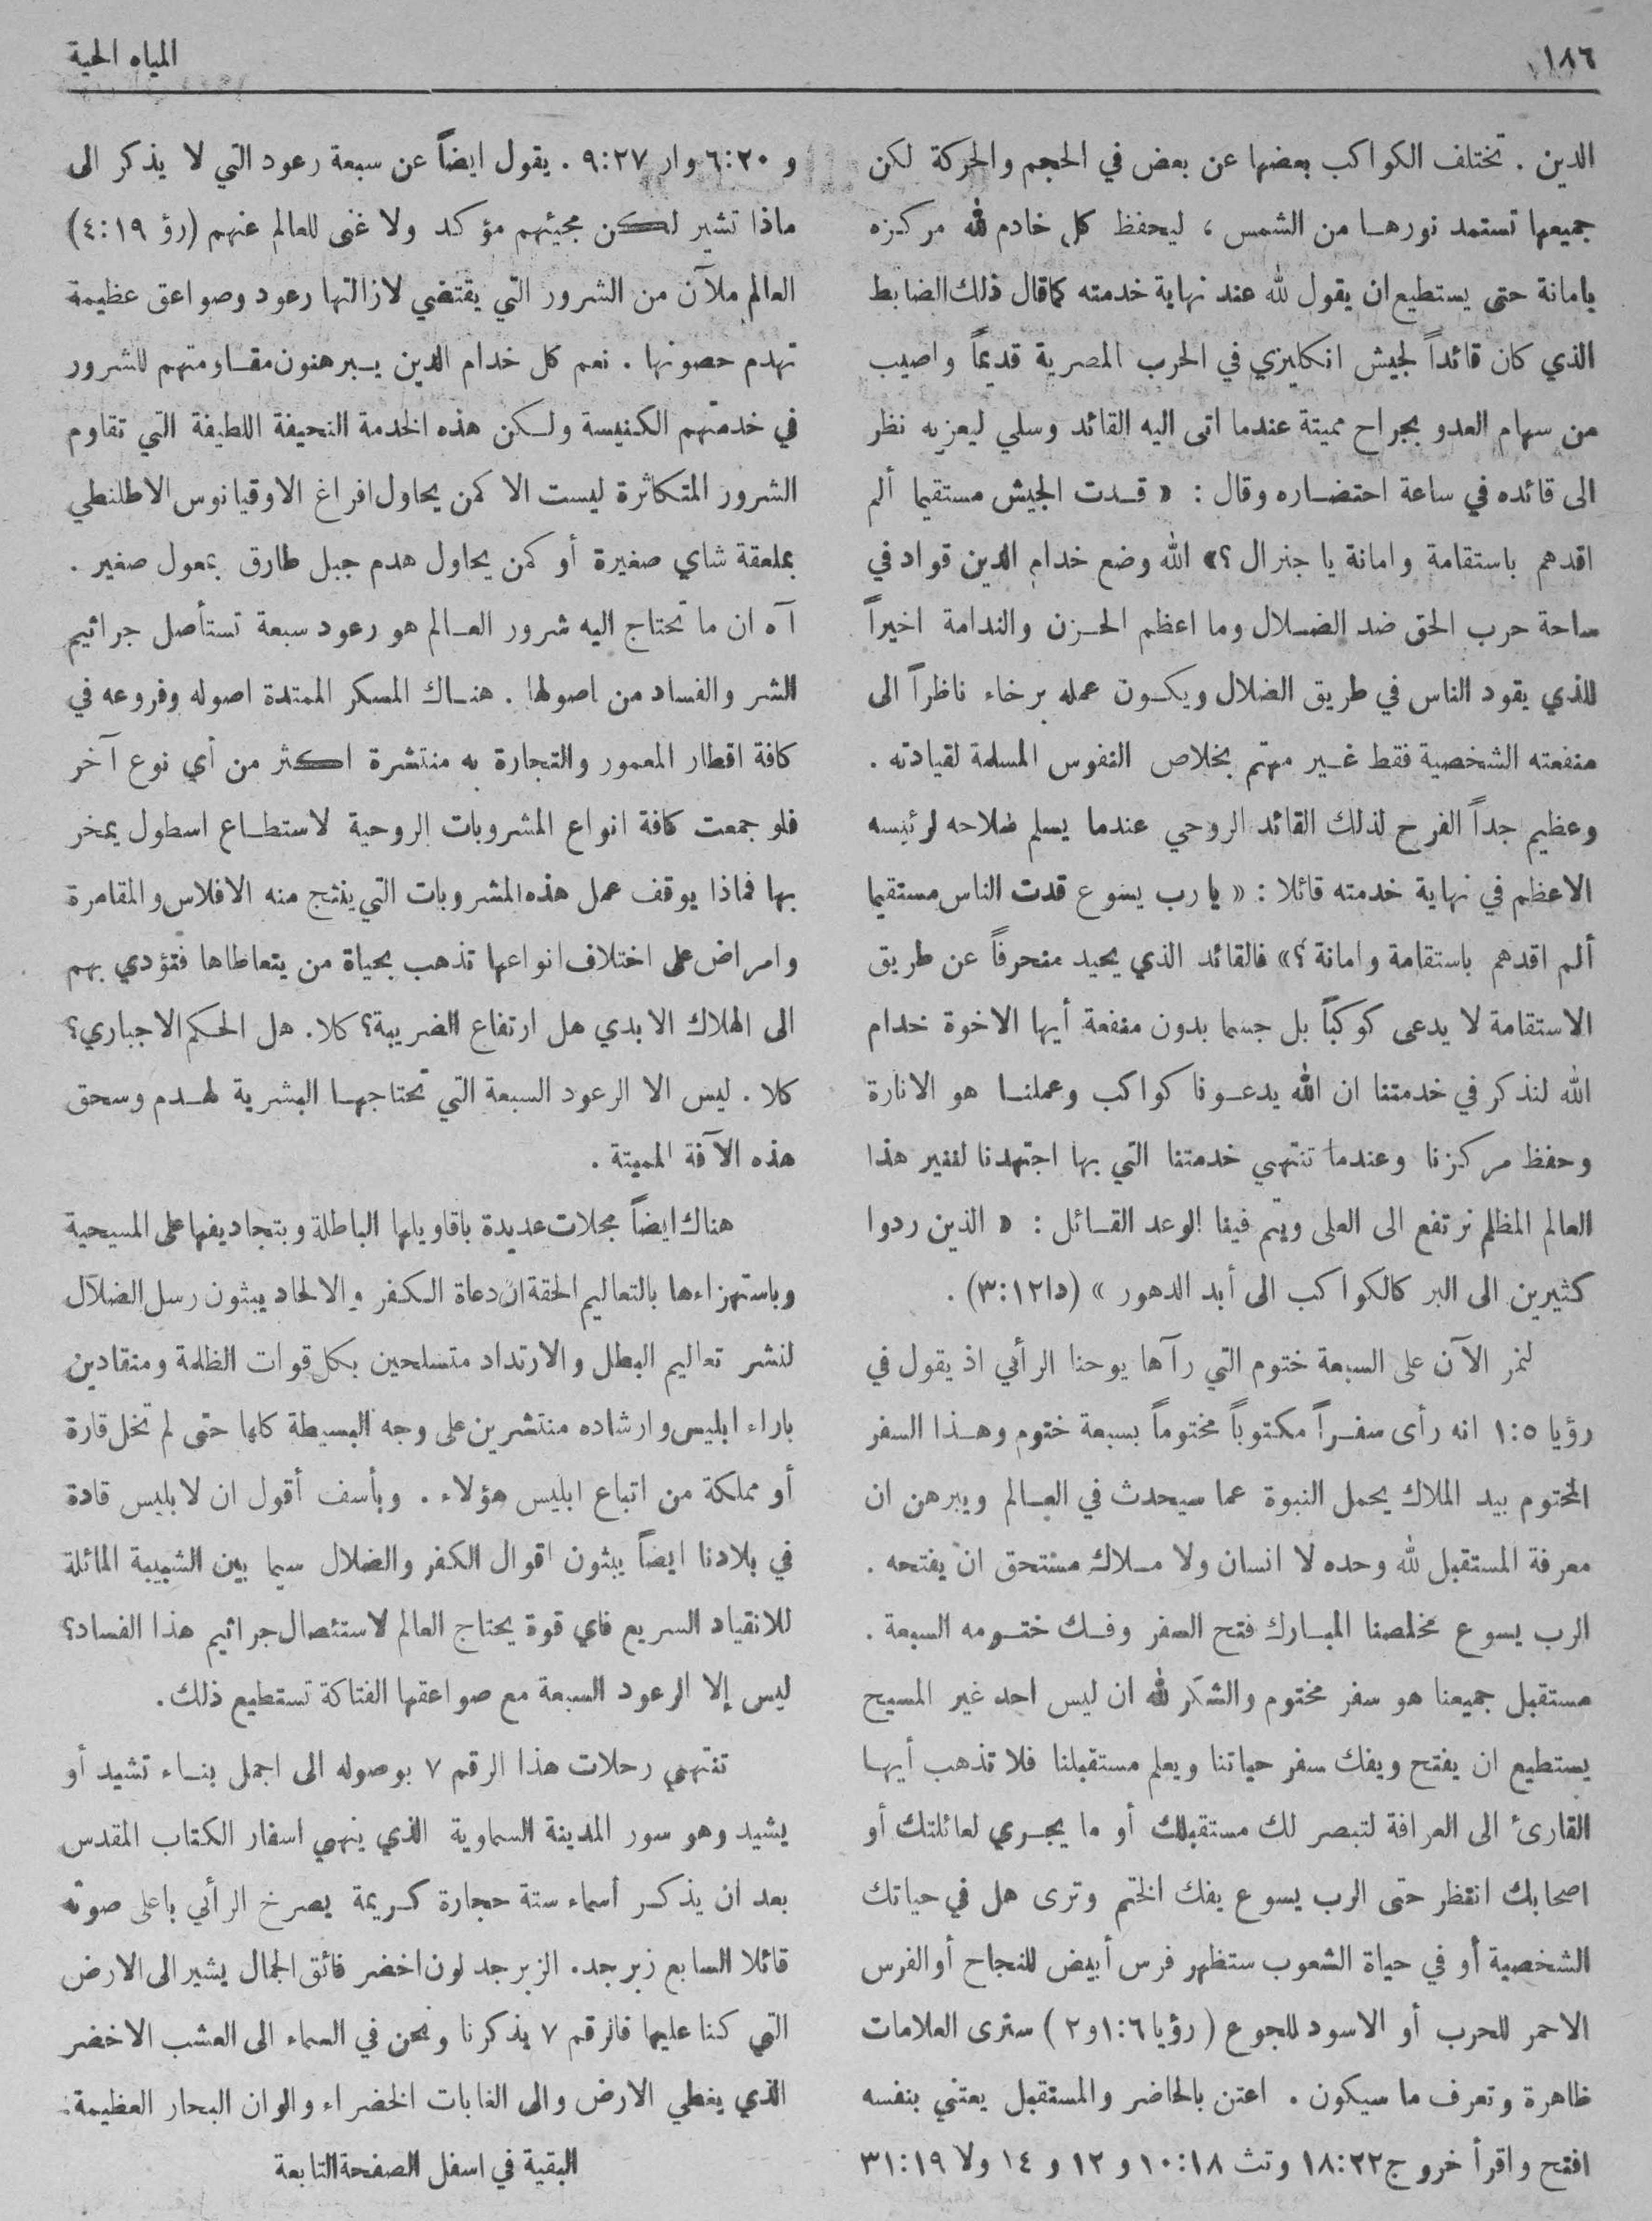 ١٨٦
المياه الحية
الدين . تختلف الكواكب بعضها عن بعض في الحجم والحركة لكن
جميعها تستمد نورهـا من الشمس ، ليحفظ كل خادم لله مركزه
بامانة حتى يستطيع ان يقول لله عند نهاية خدمته كما قال ذلك الضابط
الذي كان قائداً لجيش انكليزي في الحرب المصرية قديماً واصيب
من سهام العدو بجراح مميتة عندما اتى اليه القائد وسلي ليعزيه نظر
الى قائده في ساعة احتضـاره وقال : « قـدت الجيش مستقيما ألم
اقدهم باستقامة وامانة يا جنرال ؟» الله وضع خدام الدين قواد في
ساحة حرب الحق ضد الضـلال وما اعظم الحـزن والندامة اخيراً
للذي يقود الناس في طريق الضلال ويكـون عمله برخاء ناظراً الى
منفعته الشخصية فقط غـير مهتم بخلاص النفوس المسلمة لقيادته .
وعظيم جداً الفرح لذلك القائد الروحي عندما يسلم سلاحه لرئيسه
الاعظم في نهاية خدمته قائلا : « يا رب يسوع قدت الناس مستقيما
ألم اقدهم باستقامة وامانة ؟» فالقائد الذي يحيد منحرفاً عن طريق
الاستقامة لا يدعى كوكباً بل جسما بدون منفعة أيها الاخوة خدام
الله لنذكر في خدمتنا ان الله يدعـونا كواكب وعملنـا هو الانارة
وحفظ مركزنا وعندما تنتهي خدمتنا التي بها اجتهدنا لننير هذا
العالم المظلم نرتفع الى العلى ويتم فينا الوعد القـائل : « الذين ردوا
كثيرين الى البر كالكواكب الى أبد الدهور » (دا ٣:١٢) .
لنمر الآن على السبعة ختوم التي رآها يوحنا الرائي اذ يقول في
رؤيا ١:٥ انه رأى سفـراً مكتوباً مختوماً بسبعة ختوم وهـذا السفر
المختوم بيد الملاك يحمل النبوة عما سيحدث في العـالم ويبرهن ان
معرفة المستقبل لله وحده لا انسان ولا مـلاك مستحق ان يفتحه .
الرب يسوع مخلصنا المبـارك فتح السفر وفـك ختـومه السبعة .
مستقبل جميعنا هو سفر مختوم والشكر لله ان ليس احد غير المسيح
يستطيع ان يفتح ويفك سفر حياتنا ويعلم مستقبلنا فلا تذهب أيهـا
القارئ الى العرافة لتبصر لك مستقبلك أو ما يجـري لعائلتك أو
اصحابك انتظر حتى الرب يسوع يفك الختم وترى هل في حياتك
الشخصية أو في حياة الشعوب ستظهر فرس أبيض للنجاح أو الفرس
الاحمر للحرب أو الاسود للجوع ( رؤيا ١:٦و٢ ) سترى العلامات
ظاهرة وتعرف ما سيكون . اعتن بالحاضر والمستقبل يعتني بنفسه
افتح واقرأ خروج ١٨:٢٢ وتث ١٠:١٨ و ١٢ و ١٤ ولا ٣١:١٩
و ٦:٢٠ وار ٩:٢٧ . يقول ايضاً عن سبعة رعود التي لا يذكر الى
ماذا تشير لكن مجيئهم مؤكد ولا غنى للعالم عنهم (رؤ ٤:١٩)
العالم ملآن من الشرور التي يقتضي لازالتها رعود وصواعق عظيمة
تهدم حصونها . نعم كل خدام الدين يـبرهنون مقـاومتهم للشرور
في خدمتهم الكنيسة ولـكن هذه الخدمة النحيفة اللطيفة التي تقاوم
الشرور المتكاثرة ليست الا كمن يحاول افراغ الاوقيانوس الاطلنطي
بملعقة شاي صغيرة أو كمن يحاول هدم جبل طارق بمعول صغير .
آه ان ما تحتاج اليه شرور العـالم هو رعود سبعة تستأصل جراثيم
الشر والفساد من اصولها . هنـاك المسكر الممتدة اصوله وفروعه في
كافة اقطار المعمور والتجارة به منتشرة اكثر من أي نوع آخر
فلو جمعت كافة انواع المشروبات الروحية لاستطـاع اسطول يمخر
بها فماذا يوقف عمل هذه المشروبات التي ينتج منه الافلاس والمقامرة
وامراض على اختلاف انواعها تذهب بحياة من يتعاطاها فتؤدي بهم
الى الهلاك الابدي هل ارتفاع الضريبة؟ كلا. هل الحكم الاجباري؟
كلا . ليس الا الرعود السبعة التي تحتاجهـا البشرية لهـدم وسحق
هذه الآفة المميتة .
هناك ايضاً مجلات عديدة باقاويلها الباطلة وبتجاديفها على المسيحية
وباستهزاءها بالتعاليم الحقة ان دعاة الكفر والالحاد يبثون رسل الضلال
لنشر تعاليم البطل والارتداد متسلحين بكل قوات الظلمة ومنقادين
باراء ابليس وارشاده منتشرين على وجه البسيطة كلها حتى لم تخل قارة
أو مملكة من اتباع ابليس هؤلاء . وبأسف أقول ان لابليس قادة
في بلادنا ايضاً يبثون اقوال الكفر والضلال سيما بين الشبيبة المائلة
للانقياد السريع فاي قوة يحتاج العالم لاستئصال جراثيم هذا الفساد؟
ليس إلا الرعود السبعة مع صواعقها الفتاكة تستطيع ذلك.
تنتهي رحلات هذا الرقم ٧ بوصوله الى اجمل بنـاء تشيد أو
يشيد وهو سور المدينة السماوية الذي ينهي اسفار الكتاب المقدس
بعد ان يذكـر أسماء ستة حجارة كـريمة يصرخ الرائي باعلى صوته
قائلا السابع زبرجد. الزبرجد لون اخضر فائق الجمال يشير الى الارض
التي كنا عليها فالرقم ٧ يذكرنا ونحن في السماء الى العشب الاخضر
الذي يغطي الارض والى الغابات الخضراء والوان البحار العظيمة.
البقية في اسفل الصفحة التابعة